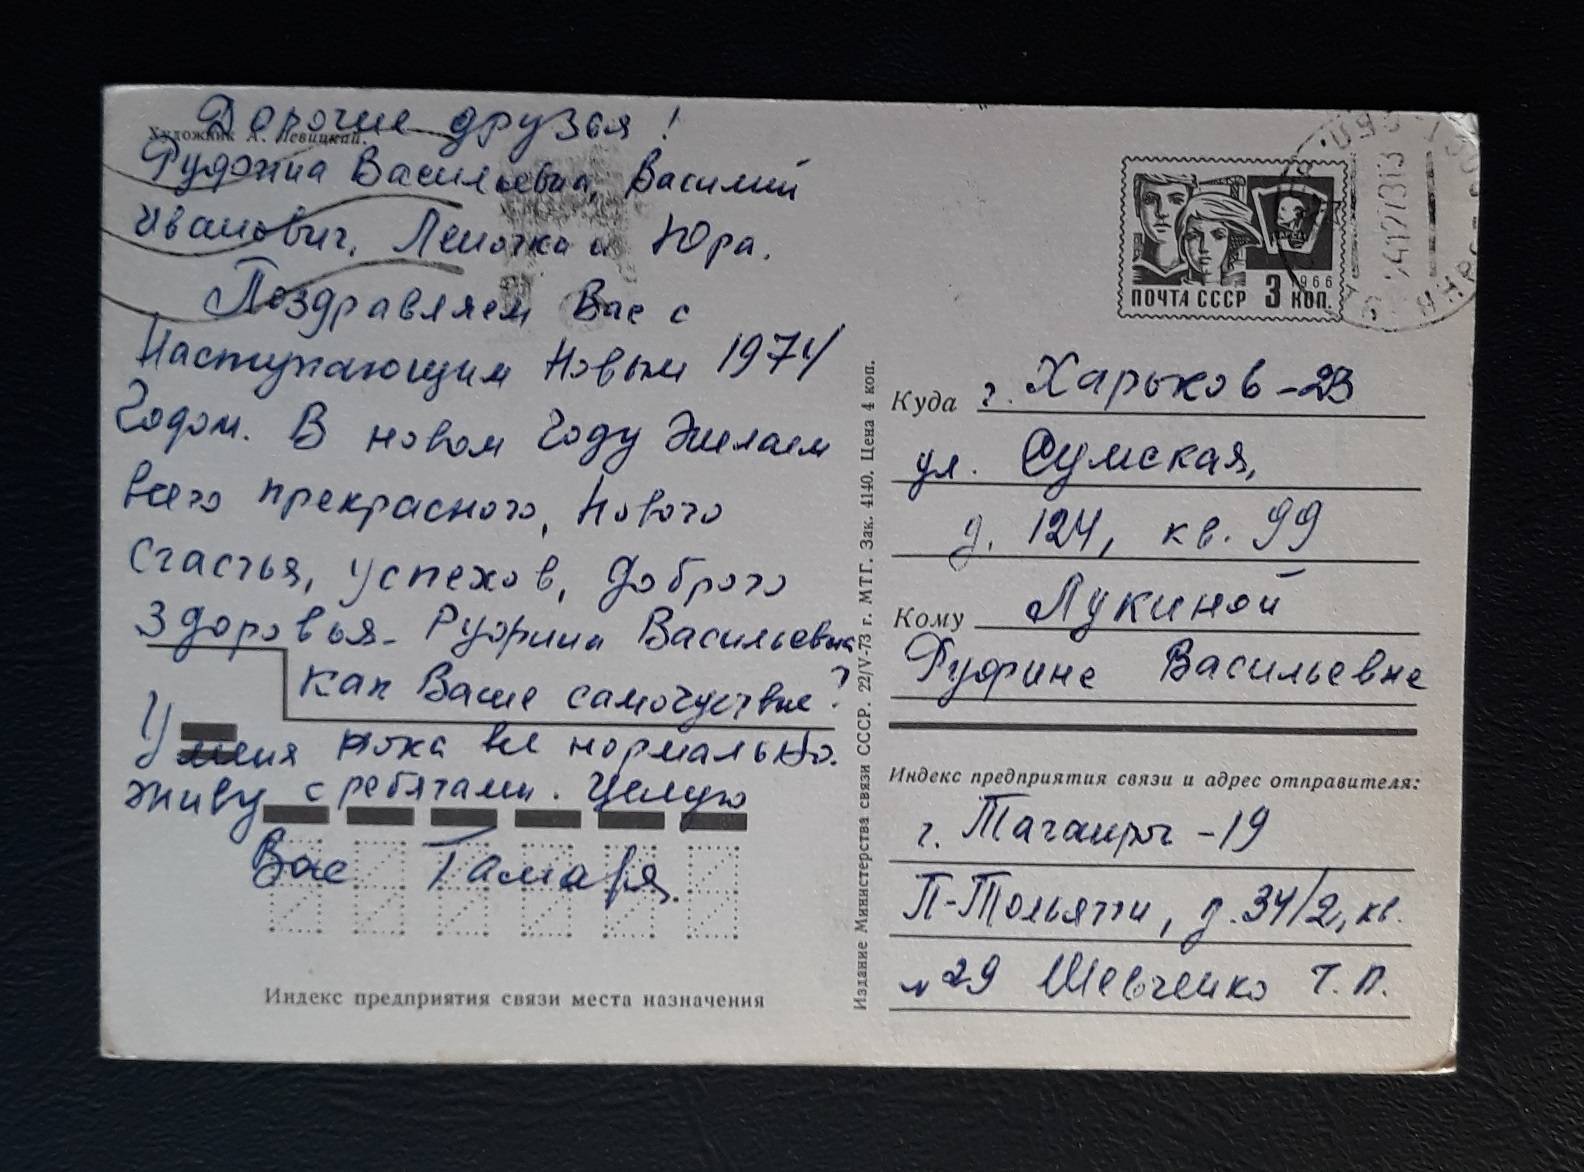 Художник А. Левицкий.
Дорогие друзья!
Руфина Васильевна, Василий
Иванович, Леночка и Юра.
Поздравляем Вас с
Наступающим Новым 1974
Годом. В новом Году желаем
всего прекрасного, нового
счастья, успехов, доброго
здоровья. Руфина Васильевна
как Ваше самочуствие?
У меня пока все нормально.
живу с ребятами. Целую
Вас Тамара.
Индекс предприятия связи места назначения
Издание Министерства связи СССР. 22/V-73 г. МТГ. Зак. 4140. Цена 4 коп.
1966
ПОЧТА СССР 3 КОП.
Куда г. Харьков-23
ул. Сумская,
д. 124, кв. 99
Кому Лукиной
Руфине Васильевне
Индекс предприятия связи и адрес отправителя:
г. Таганрог-19
П-Тольятти, д. 34/2, кв.
№29 Шевченко Т. П.